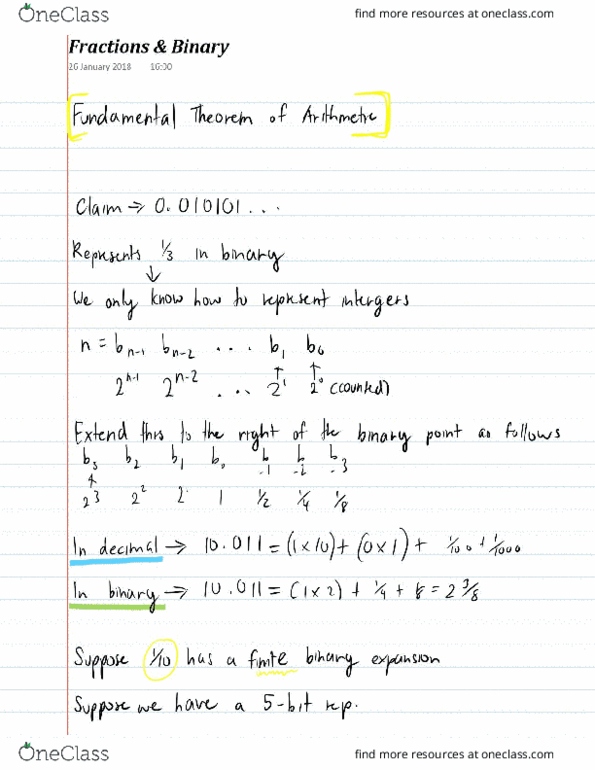 OneClass
find more resources at oneclass.com
Fractions & Binary
26 January 2018 16:00
Fundamental Theorem of Arithmetic
Claim → 0.010101...
Represents 1/3 in binary
↓
We only know how to represent intergers
n = b_{n-1} b_{n-2} ... b_1 b_0
↑ ↑
2^{n-1} 2^{n-2} ... 2^1 2^0 (counted)
Extend this to the right of the binary point as follows
b_3 b_2 b_1 b_0 b_{-1} b_{-2} b_{-3}
↑
2^3 2^2 2 1 1/2 1/4 1/8
In decimal → 10.011 = (1x10) + (0x1) + 1/100 + 1/1000
In binary → 10.011 = (1x2) + 1/4 + 1/8 = 2 3/8
Suppose 1/10 has a finite binary expansion
Suppose we have a 5-bit rep.
OneClass
find more resources at oneclass.com